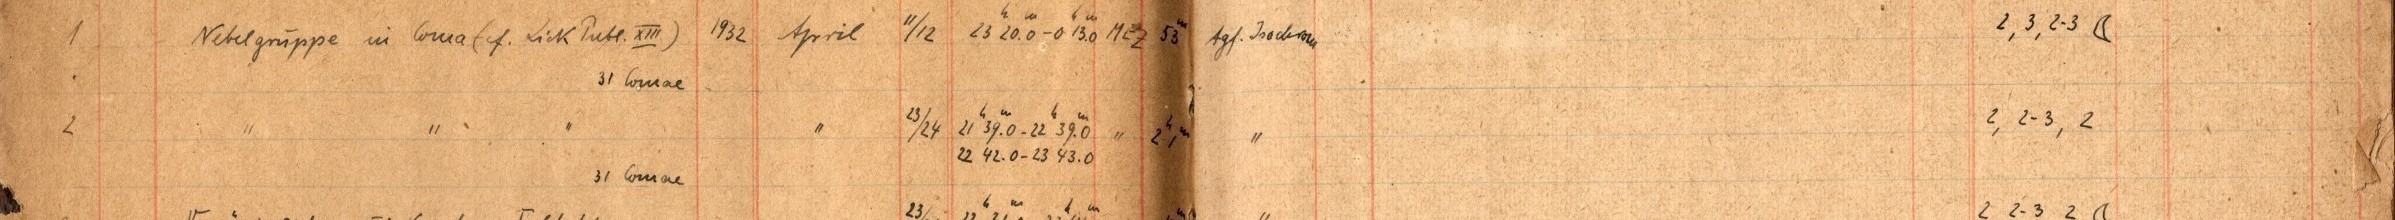 1 Nebelgruppe in Coma (cf. Lick Publ. XIII) 1932 April 11/12 23h 20.0m - 0h 13.0m MEZ 53m Agf. Isochrom 2, 3, 2-3 ☾
31 Comae
2 " " " " 23/24 21h 39.0m - 22h 39.0m " 2h 1m " 2, 2-3, 2
22 42.0 - 23 43.0
31 Comae
23/ " 2 2-3 2 ☾